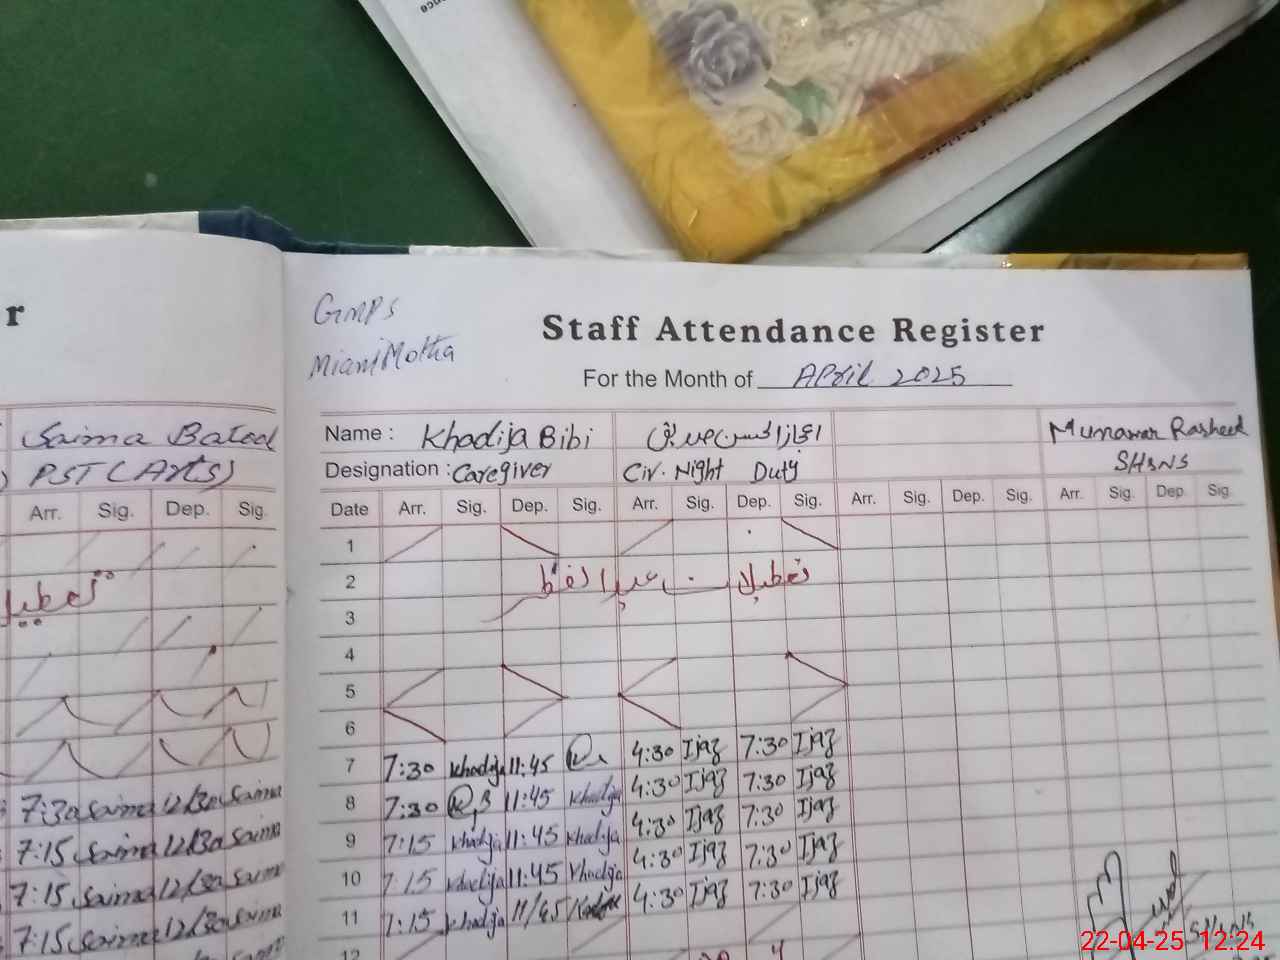 r
GMPS
Miani Motha
Staff Attendance Register
For the Month of April 2025
Saima Batool
PST (Arts)
Arr. Sig. Dep. Sig.
تعطیل
7:30 Saima 12/30 Saima
7:15 Saima 12/30 Saima
7:15 Saima 12/30 Saima
7:15 Saima 12/30 Saima
Name : Khadija Bibi اعجاز الحسن صدیقی Munawar Rasheed
Designation : Caregiver Civ. Night Duty SHSNS
Date Arr. Sig. Dep. Sig. Arr. Sig. Dep. Sig. Arr. Sig. Dep. Sig. Arr. Sig. Dep. Sig.
1
2 تعطیلات عید الفطر
3
4
5
6
7 7:30 Khadija 11:45 4:30 Ijaz 7:30 Ijaz
8 7:30 11:45 Khadija 4:30 Ijaz 7:30 Ijaz
9 7:15 Khadija 11:45 Khadija 4:30 Ijaz 7:30 Ijaz
10 7:15 Khadija 11:45 Khadija 4:30 Ijaz 7:30 Ijaz
11 7:15 Khadija 11/45 4:30 Ijaz 7:30 Ijaz
12
SHSNS
22-04-25 12:24